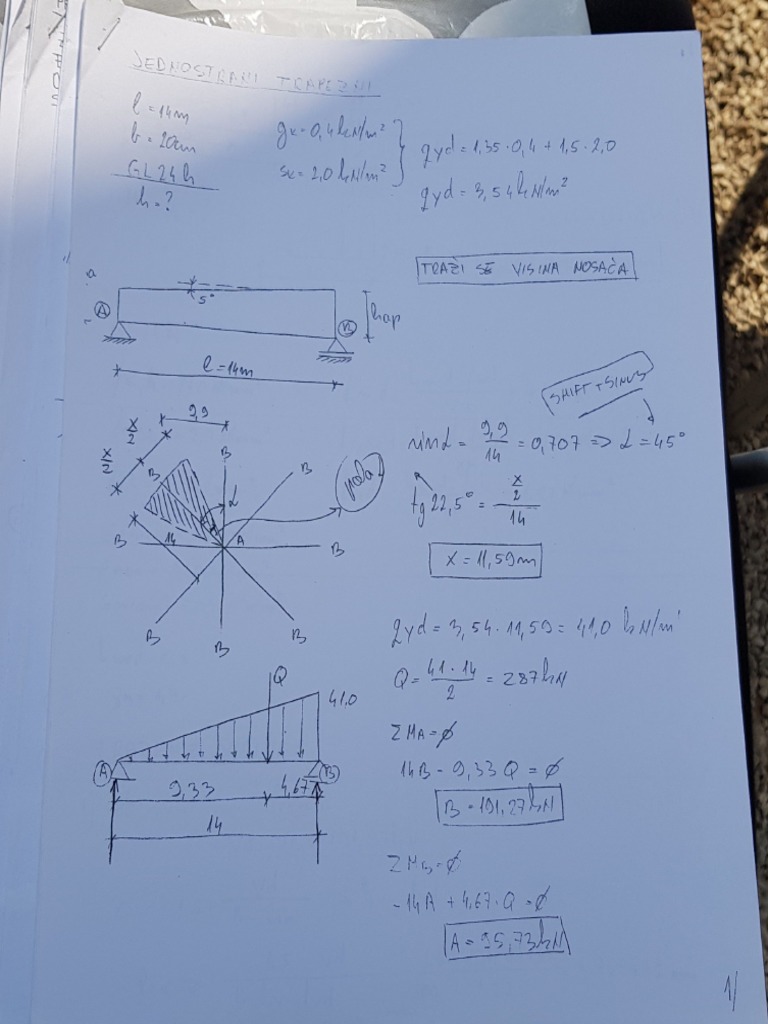 JEDNOSTRANI TRAPEZNI
l = 14m
b = 20cm
GL24h
h = ?
gk = 0,4 kN/m²
sk = 2,0 kN/m²
qyd = 1,35 · 0,4 + 1,5 · 2,0
qyd = 3,54 kN/m²
TRAŽI SE VISINA NOSAČA
5°
A
B
hap
l = 14m
SHIFT + SINUS
9,9
x/2
x/2
B
B
B
B
B
B
B
B
14
A
α
sin α = 9,9/14 = 0,707 => α = 45°
tg 22,5° = x/2 / 14
x = 11,59m
qyd = 3,54 · 11,59 = 41,0 kN/m'
Q = 41 · 14 / 2 = 287 kN
Q
41,0
A
B
9,33
4,67
14
ΣMA = 0
14B - 9,33 Q = 0
B = 191,27 kN
ΣMB = 0
-14A + 4,67 · Q = 0
A = 95,73 kN
1/